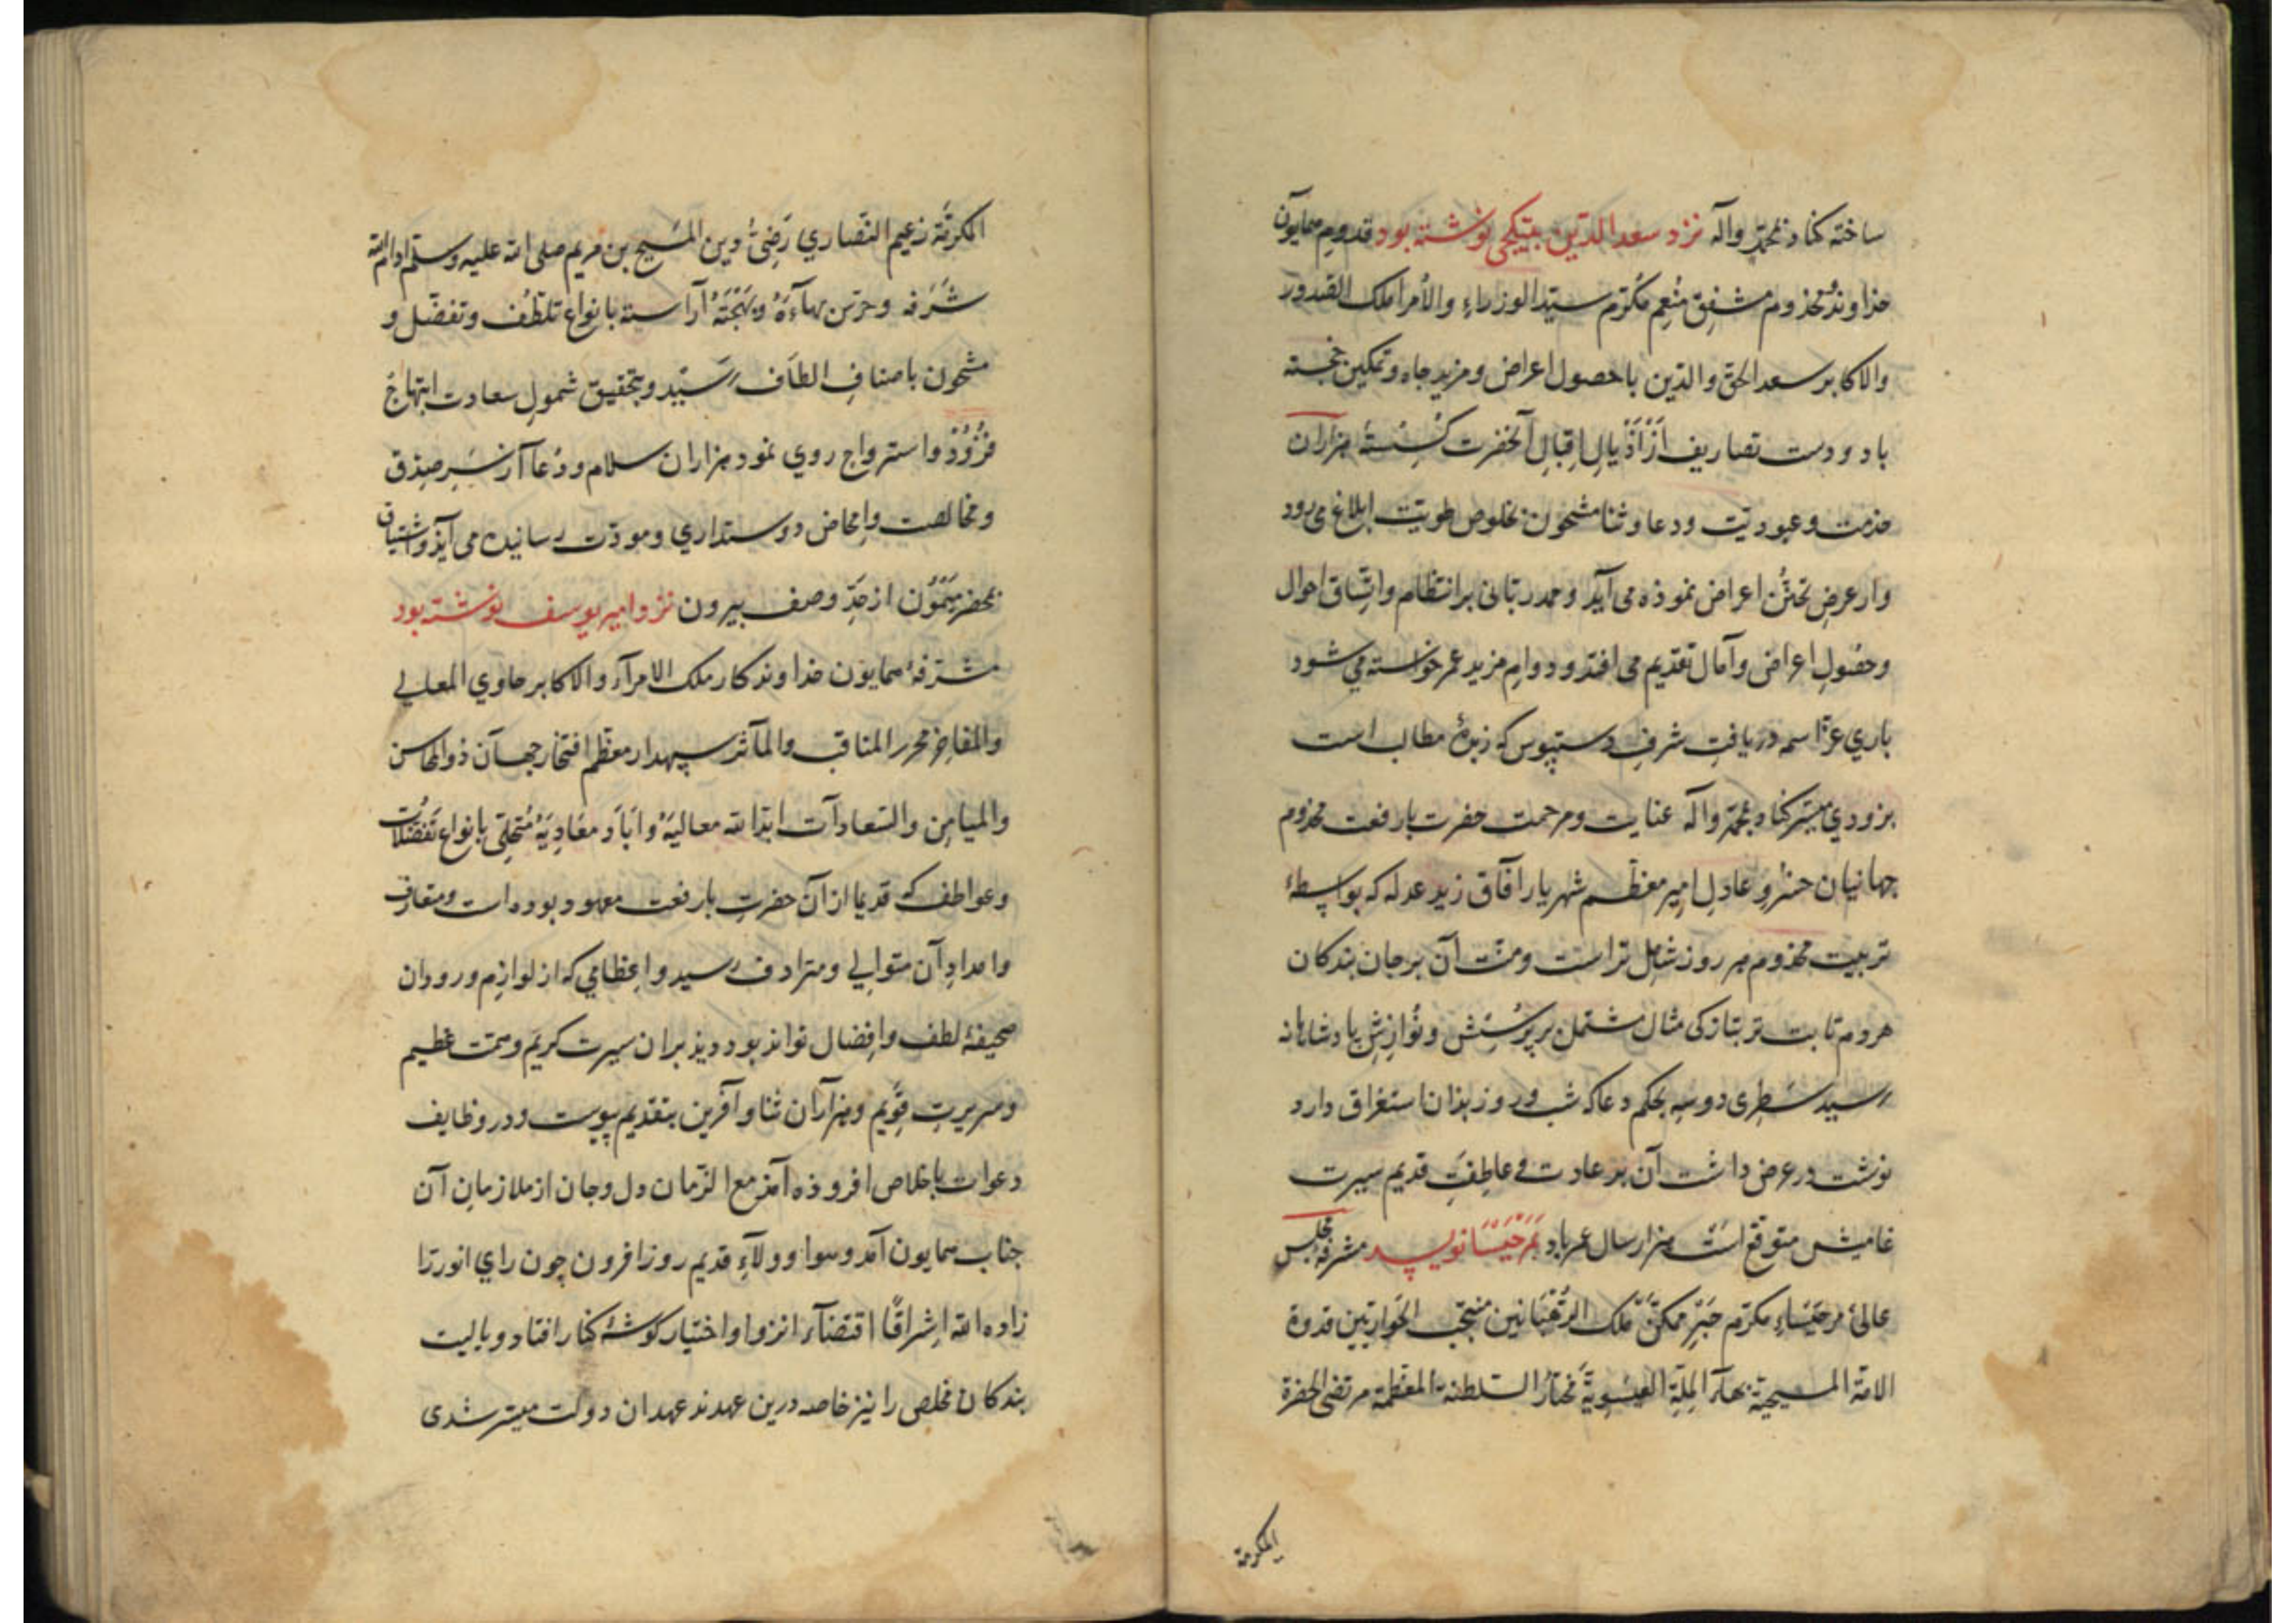 ساخته کناد بمحمد وآله نزد سعد الدین بیتکچی نوشته بود قدوم همایون
خداوند ومخدوم مشفق منعم مکرم سید الوزراء والأمرا ملک الصدور
والاکابر سعد الحق والدین با حصول اعراض ومزید جاه وتمکین خجسته
باد ودست تصاریف از اذیال اقبال آنحضرت کسسته هزاران
خدمت وعبودیت ودعا وثنا مشحون بخلوص طویت ابلاغ می رود
واز عرض تحنن اعراض نموذه می آید وحمد ربانی بر انتظام واتساق احوال
وحصول اعراض وآمال تقدیم می افتد ودوام مزید عمر خواسته می شود
باری عز اسمه دریافت شرف دستبوس که زبدهٔ مطالب است
بزودی میسر کناد بمحمد وآله عنایت ومرحمت حضرت بارفعت مخدوم
جهانیان خسرو عادل امیر معظم شهریار آفاق زید عدله که بواسطهٔ
تربیت مخدوم هر روز شامل تراست ومنت آن بر جان بندکان
هردم ثابت تر بتازکی مثال مشتمل بر پرسش ونوازش پادشاهانه
رسید سطری دوسه بحکم دعا که شب وروز بذان استغراق دارد
نوشت در عرض داشت آن بر عادت عاطفت قدیم سیرت
متوقع است هزار سال عمر باد بمرحسیا نویسد مشرفهٔ مجلس
عالئ مرحسیاء مکرم حبر ممکن ملک الرهبانین منتجب الحواریین قدوة
الامة المسیحیة بهاء الملة العیسویة مختار السلطنة المعظمة مرتضی الحضرة
المکرمة
المکرمة زعیم النصاری رضی دین المسیح بن مریم صلی الله علیه وسلم ادام الله
شرفه وحرس بهاءه وبهجته آراسته بانواع تلطف وتفضل و
مشحون باصناف الطاف رسید وبتحقیق شمول سعادت ابتهاج
فزود واسترواح روی نمود هزاران سلام ودعا از سر صدق
ومخالصت وامحاض دوستداری ومودت رسانیده می آید واشتیاق
بحضر میمون از حد وصف بیرون نزد امیر یوسف نوشته بود
مشرفهٔ همایون خداوندکار ملک الامراء والاکابر حاوی المعالی
والمفاخر محرر المناقب والمآثر سپهدار معظم افتخار جهان ذو المحاسن
والمیامن والسعادات ابد الله معالیه واباد معادیه متحلی بانواع تفضلات
وعواطف که قدیما از آن حضرت بارفعت معهود بوده است ومتعارف
وامداد آن متوالی ومترادف رسید واعظامی که از لوازم ورود آن
صحیفهٔ لطف وافضال تواند بود بران سیرت کریم وسمت عظیم
وسریرت قویم وهزاران ثنا وآفرین بتقدیم پیوست ودر وظایف
دعوات باخلاص افروذه آمد مع الزمان دل وجان از ملازمان آن
جناب همایون آمد وهوا وولاء قدیم روز افزون چون رای انور را
زاده الله اشراقا اقتضاء انزوا واختیار کوشهٔ کنار افتاد ویالیت
بندکان مخلص را نیز خاصه درین عهد بد عهد ان دولت میسر شدی